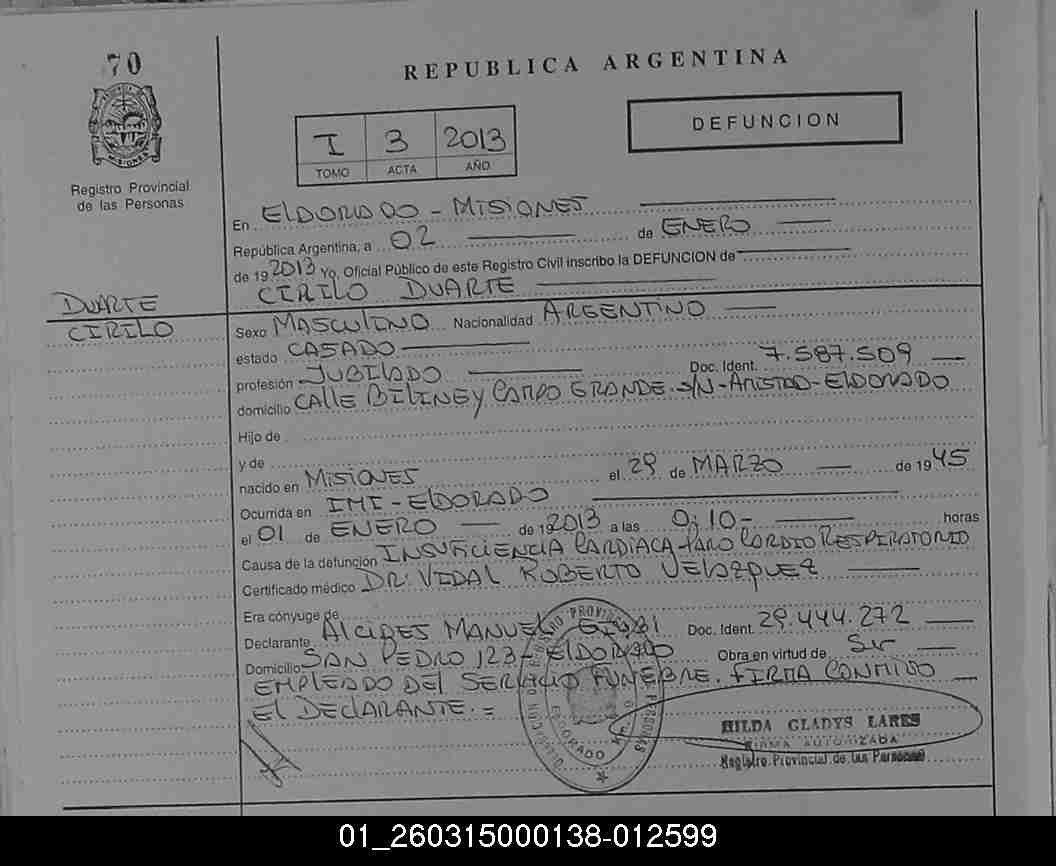 70
REPUBLICA ARGENTINA
I 3 2013
TOMO ACTA AÑO
DEFUNCION
MISIONES
Registro Provincial
de las Personas
En ELDORADO - MISIONES
República Argentina, a 02 de ENERO
de 19 2013 Yo, Oficial Público de este Registro Civil inscribo la DEFUNCION de
CIRILO DUARTE
DUARTE
CIRILO
Sexo MASCULINO Nacionalidad ARGENTINO
estado CASADO
profesión JUBILADO Doc. Ident. 7.587.509
domicilio CALLE BILINEY CAMPO GRANDE S/N - AMISTAD - ELDORADO
Hijo de
y de
nacido en MISIONES el 29 de MARZO de 19 45
Ocurrida en IMI - ELDORADO
el 01 de ENERO de 19 2013 a las 0:10 - horas
Causa de la defunción INSUFICIENCIA CARDIACA - PARO CARDIO RESPIRATORIO
Certificado médico DR: VIDAL ROBERTO VELAZQUEZ
Era cónyuge de
Declarante ALCIDES MANUEL Doc. Ident. 29.444.272
Domicilio SAN PEDRO 123 - ELDORADO Obra en virtud de
EMPLEADO DEL SERVICIO FUNEBRE. FIRMA CONMIGO
EL DECLARANTE. =
HILDA GLADYS LARES
FIRMA AUTORIZADA
Registro Provincial de las Personas
01_260315000138-012599